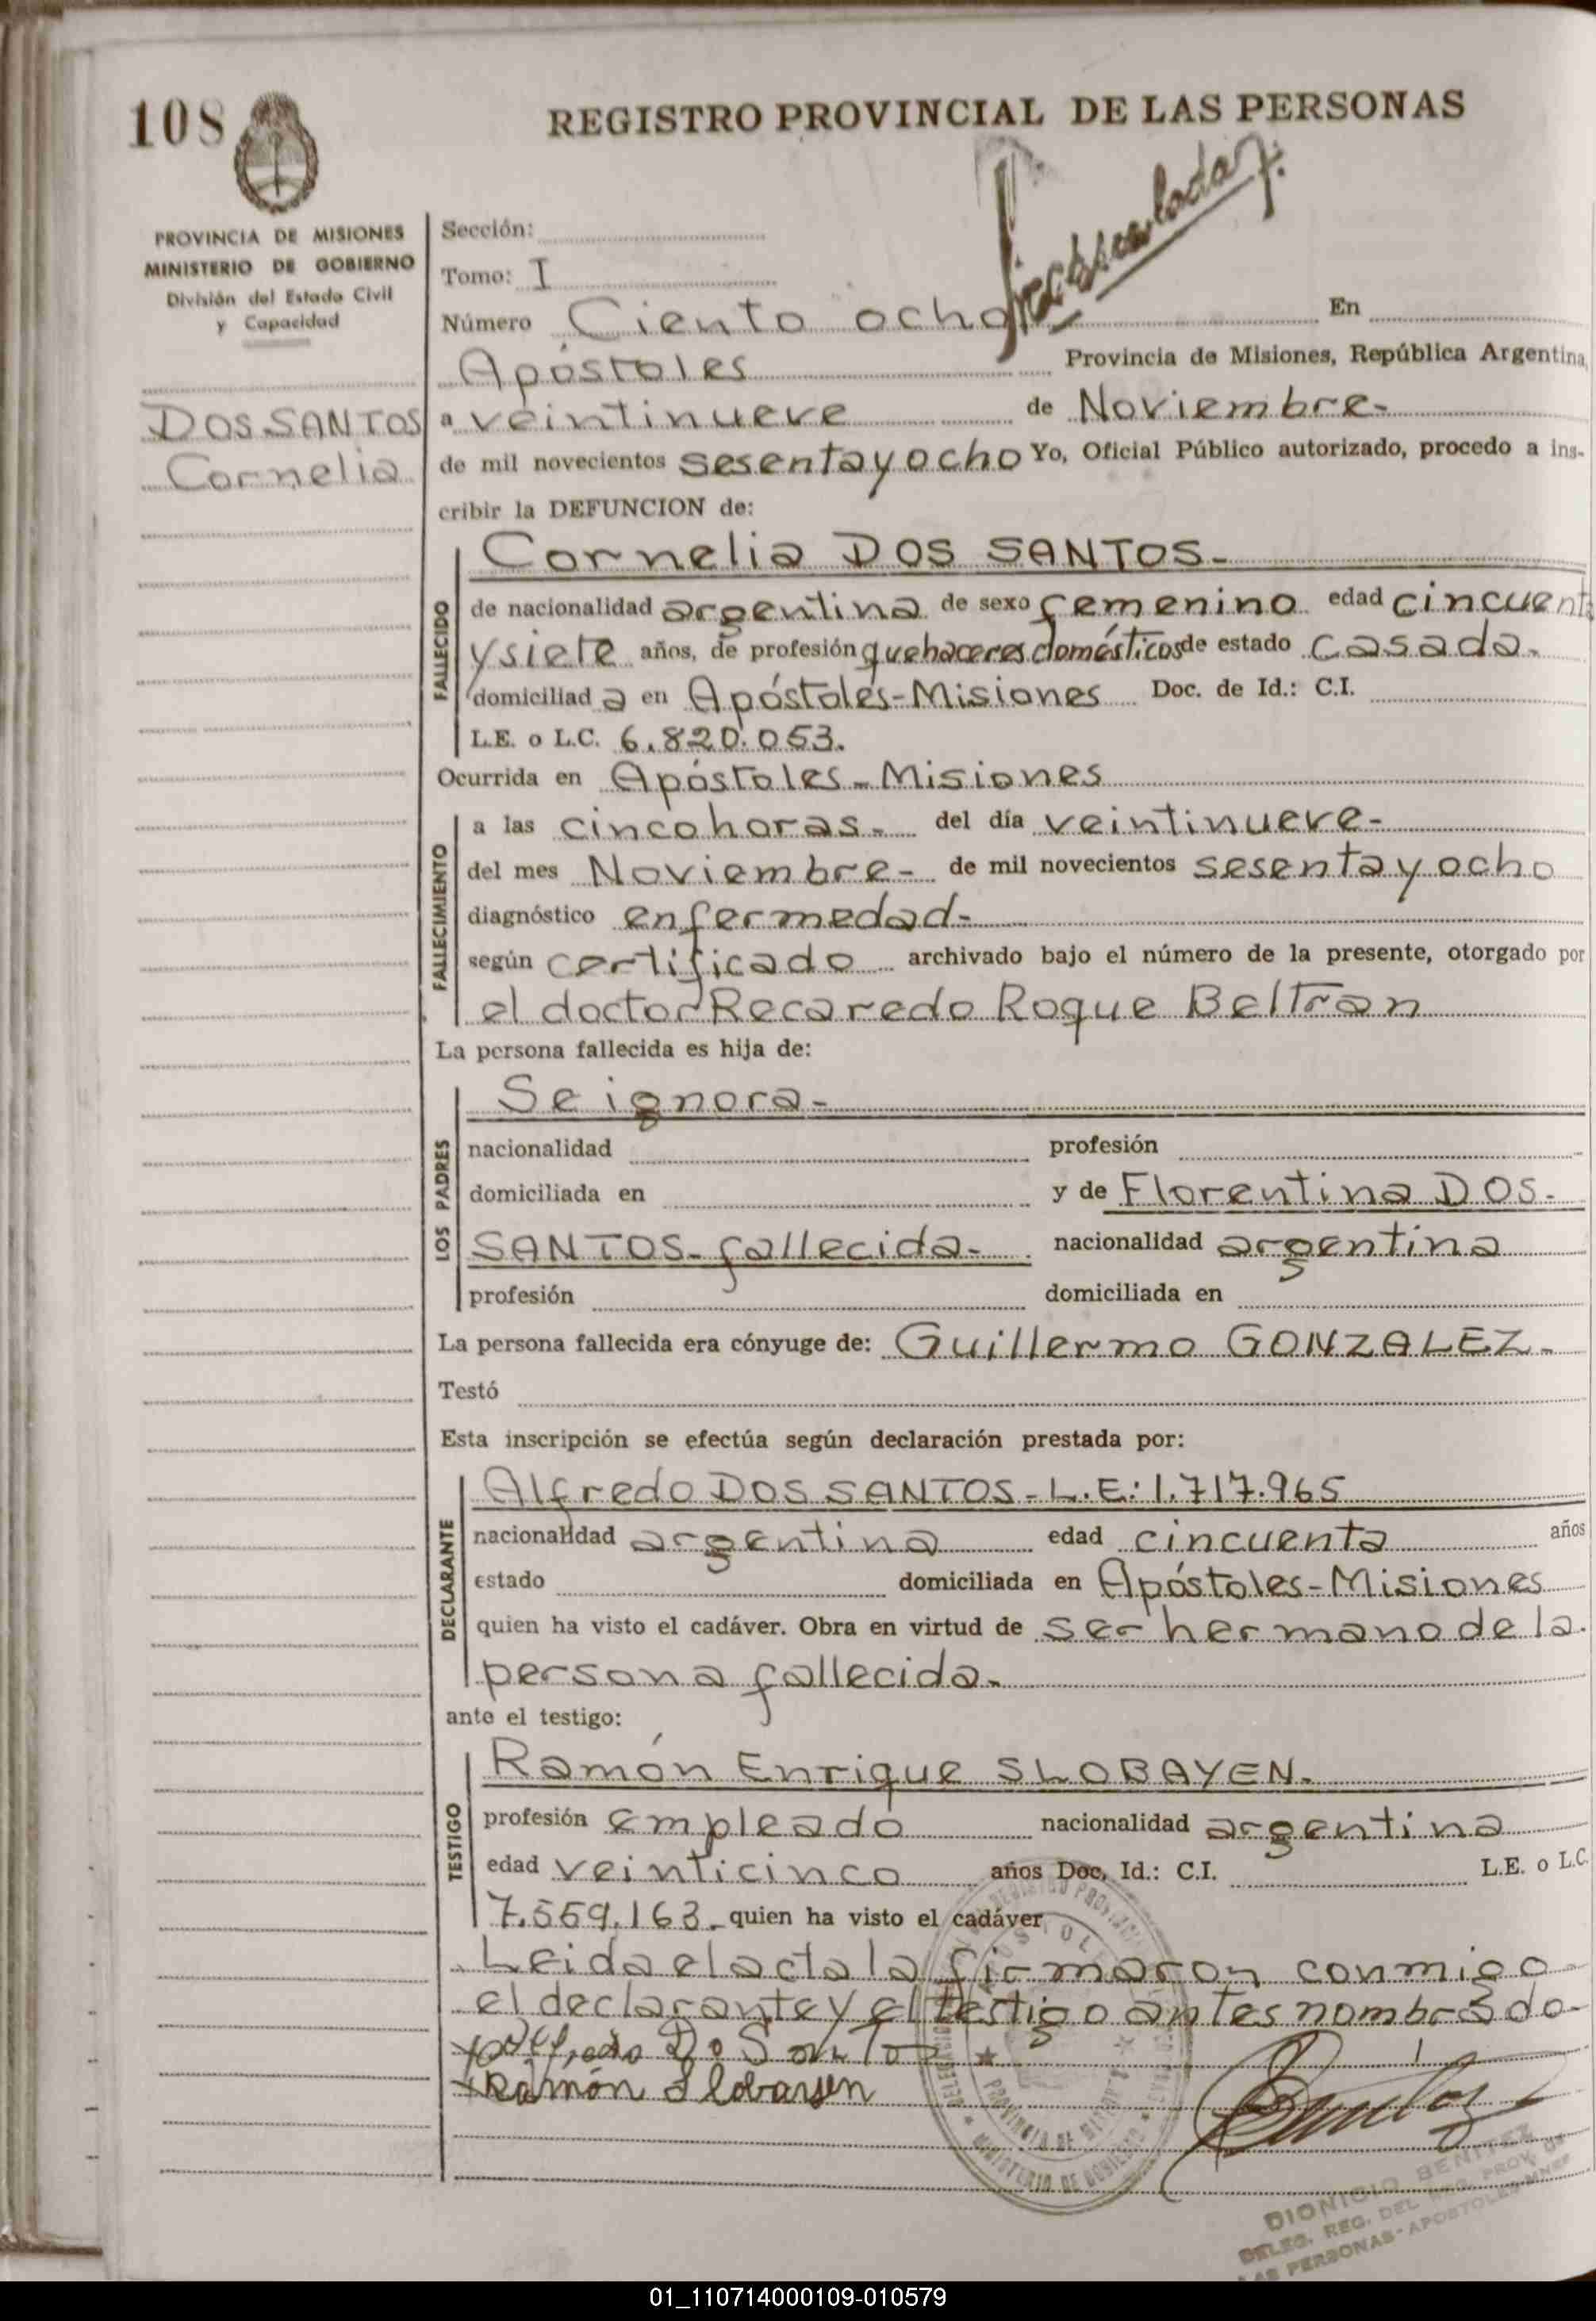 108
REGISTRO PROVINCIAL DE LAS PERSONAS
PROVINCIA DE MISIONES
MINISTERIO DE GOBIERNO
División del Estado Civil
y Capacidad
DOS SANTOS
Cornelia
Sección:
Tomo: I
Número Ciento ocho En
Apóstoles Provincia de Misiones, República Argentina,
a veintinueve de Noviembre-
de mil novecientos sesenta y ocho Yo, Oficial Público autorizado, procedo a ins-
cribir la DEFUNCION de:
FALLECIDO
Cornelia DOS SANTOS-
de nacionalidad argentina de sexo femenino edad cincuenta
y siete años, de profesión quehaceres domésticos de estado casada-
domiciliad a en Apóstoles-Misiones Doc. de Id.: C.I.
L.E. o L.C. 6.820.053.
Ocurrida en Apóstoles-Misiones
FALLECIMIENTO
a las cinco horas- del día veintinueve-
del mes Noviembre- de mil novecientos sesenta y ocho
diagnóstico enfermedad-
según certificado archivado bajo el número de la presente, otorgado por
el doctor Recaredo Roque Beltran
La persona fallecida es hija de:
LOS PADRES
Se ignora-
nacionalidad profesión
domiciliada en y de Florentina DOS-
SANTOS- fallecida- nacionalidad argentina
profesión domiciliada en
La persona fallecida era cónyuge de: Guillermo GONZALEZ-
Testó
Esta inscripción se efectúa según declaración prestada por:
DECLARANTE
Alfredo DOS SANTOS- L.E: 1.717.965
nacionalidad argentina edad cincuenta años
estado domiciliada en Apóstoles-Misiones
quien ha visto el cadáver. Obra en virtud de ser hermano de la
persona fallecida-
ante el testigo:
TESTIGO
Ramón Enrique SLOBAYEN-
profesión empleado nacionalidad argentina
edad veinticinco años Doc. Id.: C.I. L.E. o L.C.
7.559.163- quien ha visto el cadáver
Leida el acta la firmaron conmigo
el declarante y el testigo antes nombrado-
Alfredo Do Santo
Ramón Slobayen
DIONICIO BENITEZ
DELEG. REG. DEL REG. PROV. DE
LAS PERSONAS-APOSTOLES-MNES
01_110714000109-010579